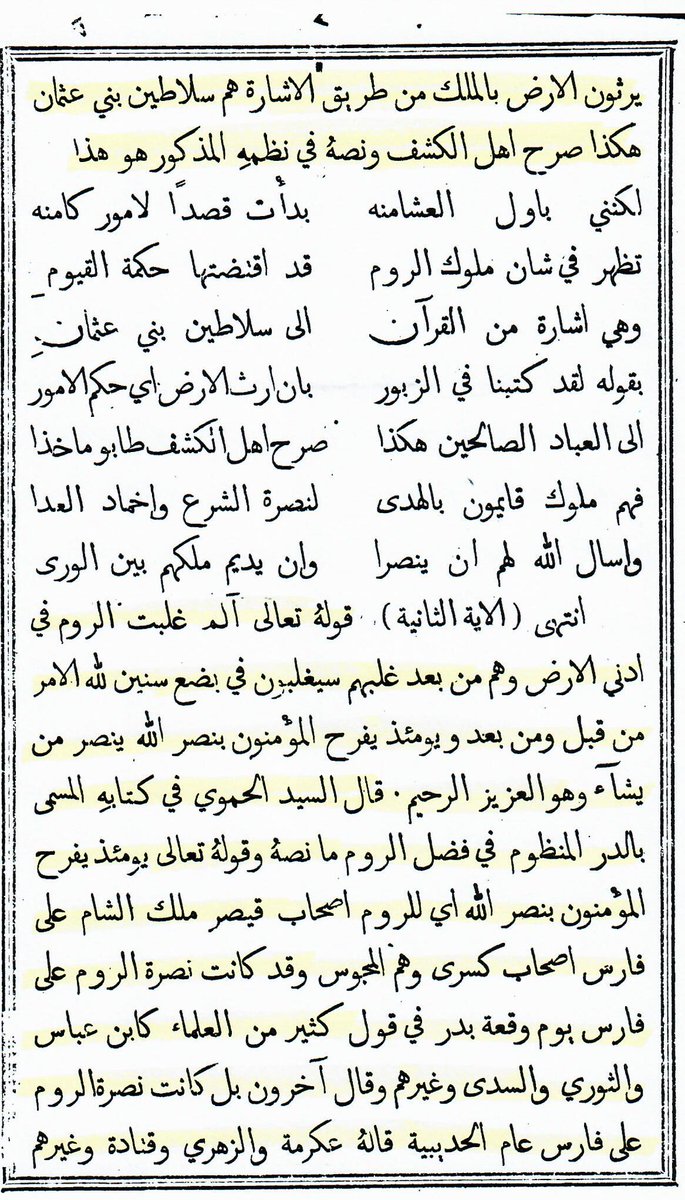 يرثون الارض بالملك من طريق الاشارة هم سلاطين بني عثمان
هكذا صرح اهل الكشف ونصهُ في نظمهِ المذكور هو هذا
لكنني باول العشامنه بدأت قصدًا لامور كامنه
تظهر في شان ملوك الروم قد اقتضتها حكمة القيوم
وهي اشارة من القرآن الى سلاطين بني عثمان
بقوله لقد كتبنا في الزبور بان ارث الارض اي حكم الامور
الى العباد الصالحين هكذا صرح اهل الكشف طابو ماخذا
فهم ملوك قايمون بالهدى لنصرة الشرع واخماد العدا
واسال الله لهم ان ينصرا وان يديم ملكهم بين الورى
انتهى (الاية الثانية) قولهُ تعالى آلم غلبت الروم في
ادني الارض وهم من بعد غلبهم سيغلبون في بضع سنين لله الامر
من قبل ومن بعد و يومئذ يفرح المؤمنون بنصر الله ينصر من
يشآء وهو العزيز الرحيم · قال السيد الحموي في كتابهِ المسمى
بالدر المنظوم في فضل الروم ما نصهُ وقولهُ تعالى يومئذ يفرح
المؤمنون بنصر الله اي للروم اصحاب قيصر ملك الشام على
فارس اصحاب كسرى وهم المجوس وقد كانت نصرة الروم على
فارس يوم وقعة بدر في قول كثير من العلماء كابن عباس
والثوري والسدى وغيرهم وقال آخرون بل كانت نصرة الروم
على فارس عام الحديبية قالهُ عكرمة والزهري وقتادة وغيرهم